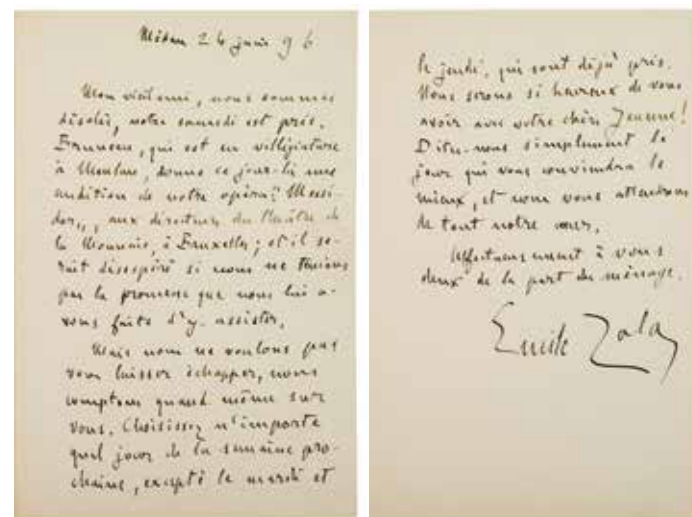 Médan 24 juin 96
Mon vieil ami, nous sommes
désolés, notre samedi est pris.
Bruneau, qui est en villégiature
à Moulins, donne ce jour-là une
audition de notre opéra : "Messi-
dor", aux directeurs du théâtre de
la Monnaie, à Bruxelles ; et il se-
rait désespéré si nous ne tenions
pas la promesse que nous lui a-
vons faite d'y assister.
Mais nous ne voulons pas
vous laisser échapper, nous
comptons quand même sur
vous. Choisissez n'importe
quel jour de la semaine pro-
chaine, excepté le mardi et
le jeudi, qui sont déjà pris.
Nous serons si heureux de vous
avoir avec votre chère Jeanne !
Dites-nous simplement le
jour qui vous conviendra le
mieux, et nous vous attendrons
de tout notre cœur.
Affectueusement à vous
deux de la part du ménage.
Emile Zola